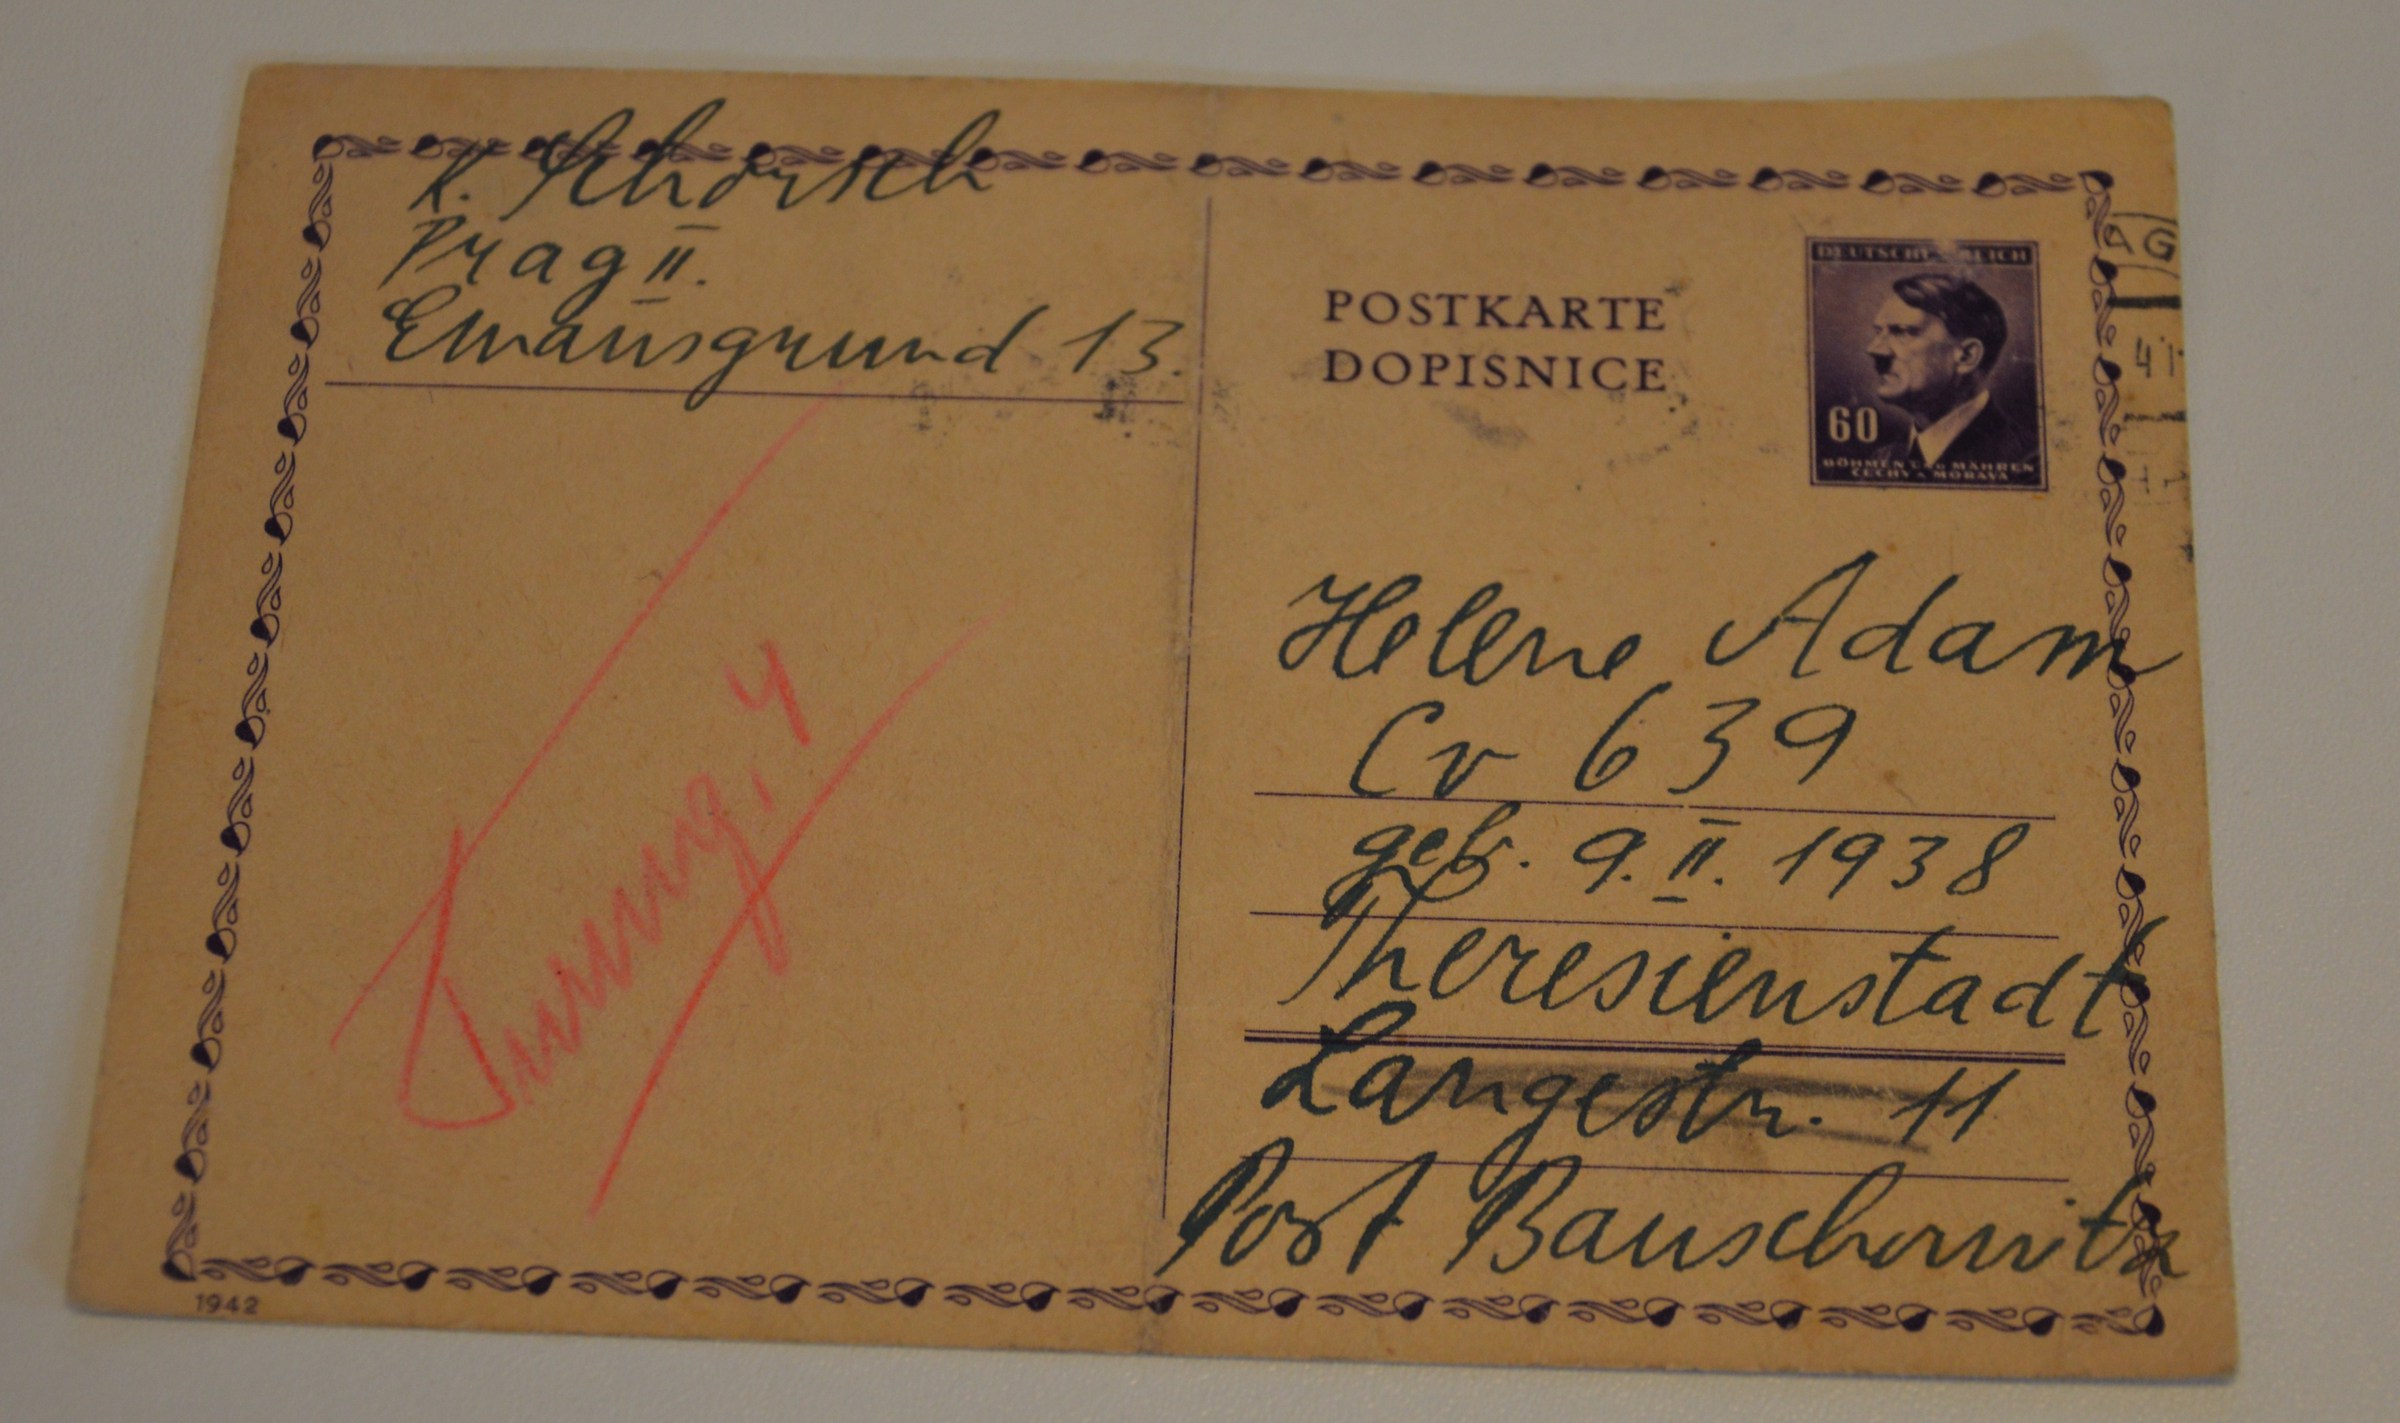 K. Schorsch
Prag II.
Emausgrund 13.
POSTKARTE
DOPISNICE
DEUTSCHES REICH
60
BÖHMEN UND MÄHREN
ČECHY A MORAVA
AG
41
Helene Adam
Cv 639
geb. 9. II. 1938
Theresienstadt
Langestr. 11
Post Bauschowitz
1942